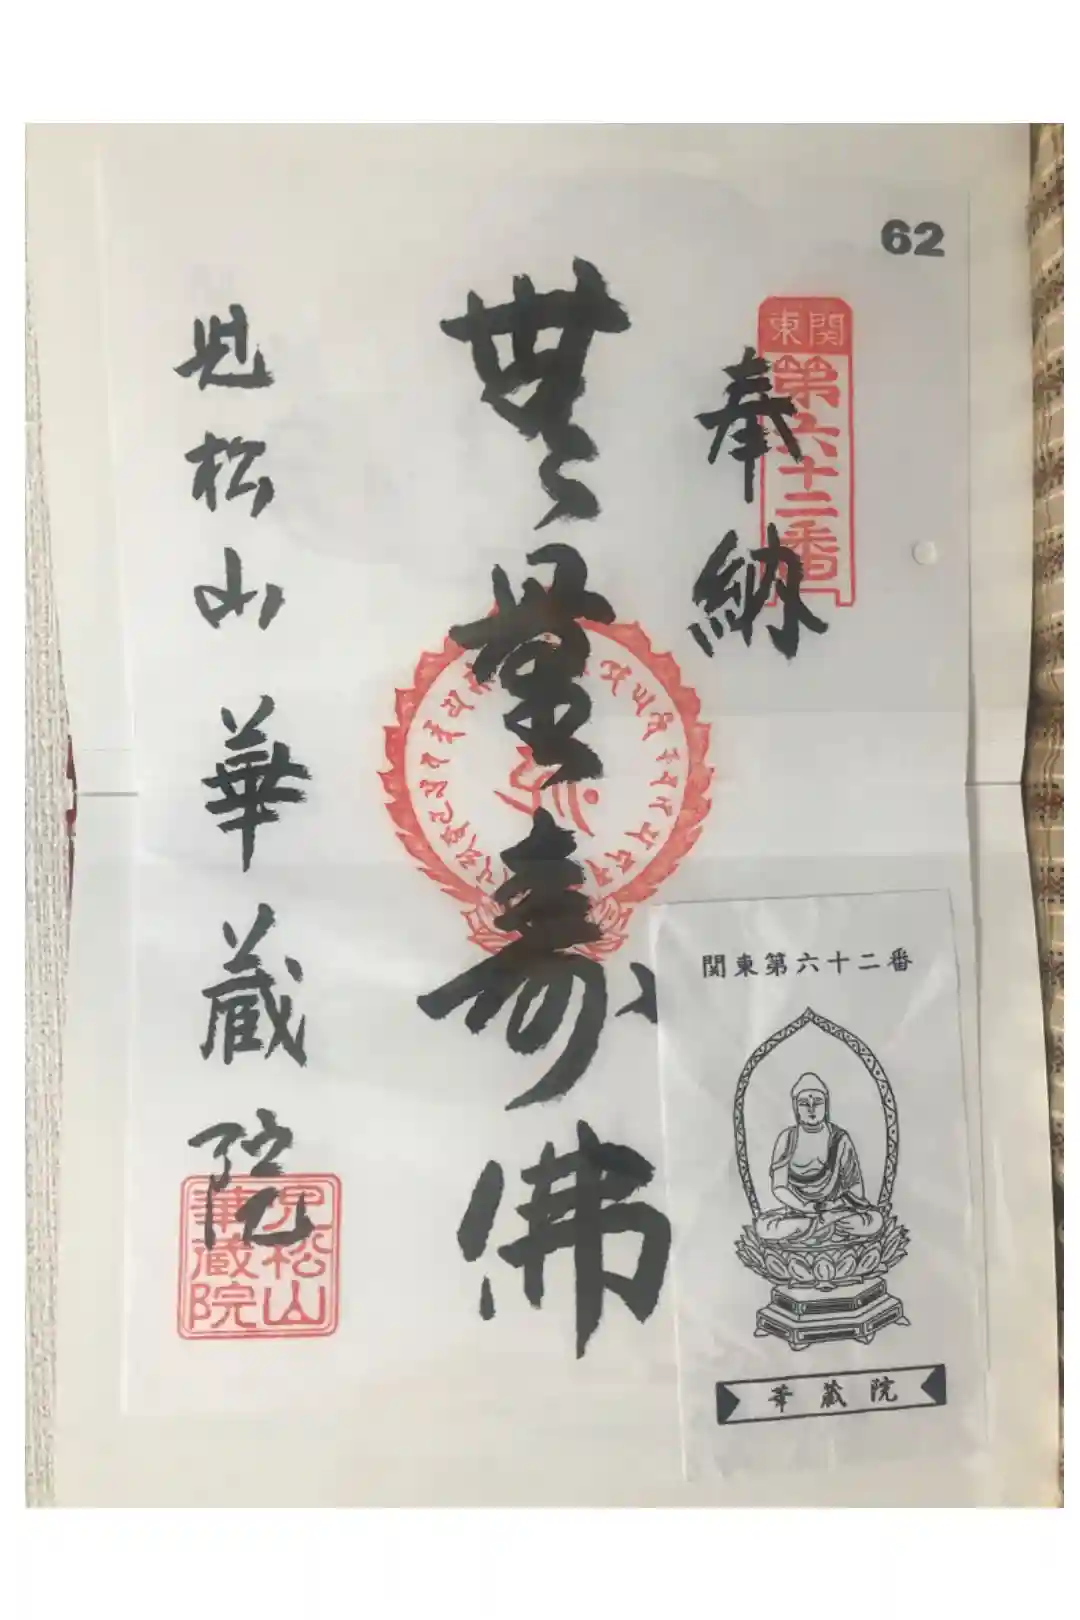 62
関東
第六十二番
奉納
無量寿佛
児松山華蔵院
児松山
華蔵院
関東第六十二番
華蔵院